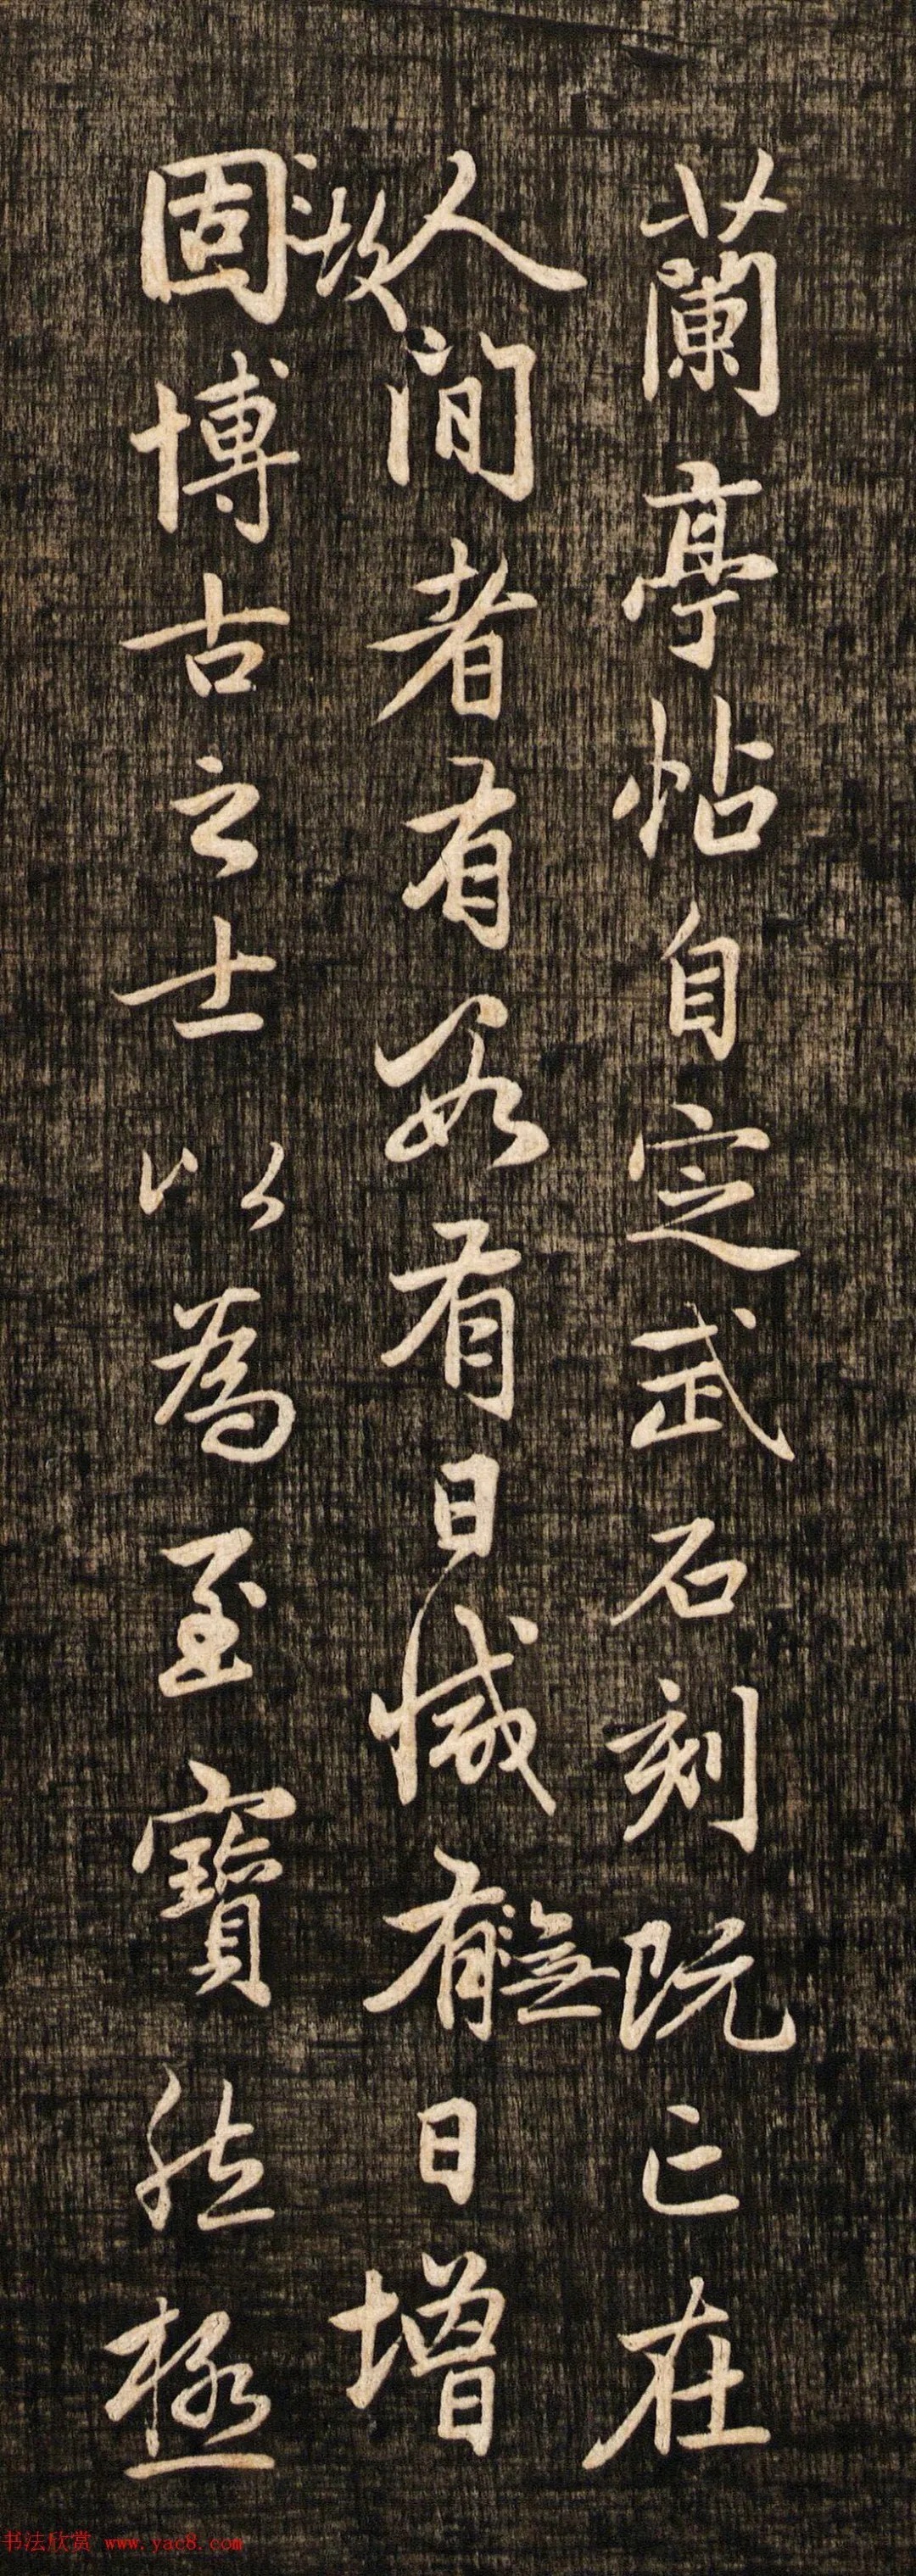 蘭亭帖自定武石刻既亡在
人間者有數有日減有無日增
故
固博古之士以為至寶然極
书法欣赏 www.yac8.com